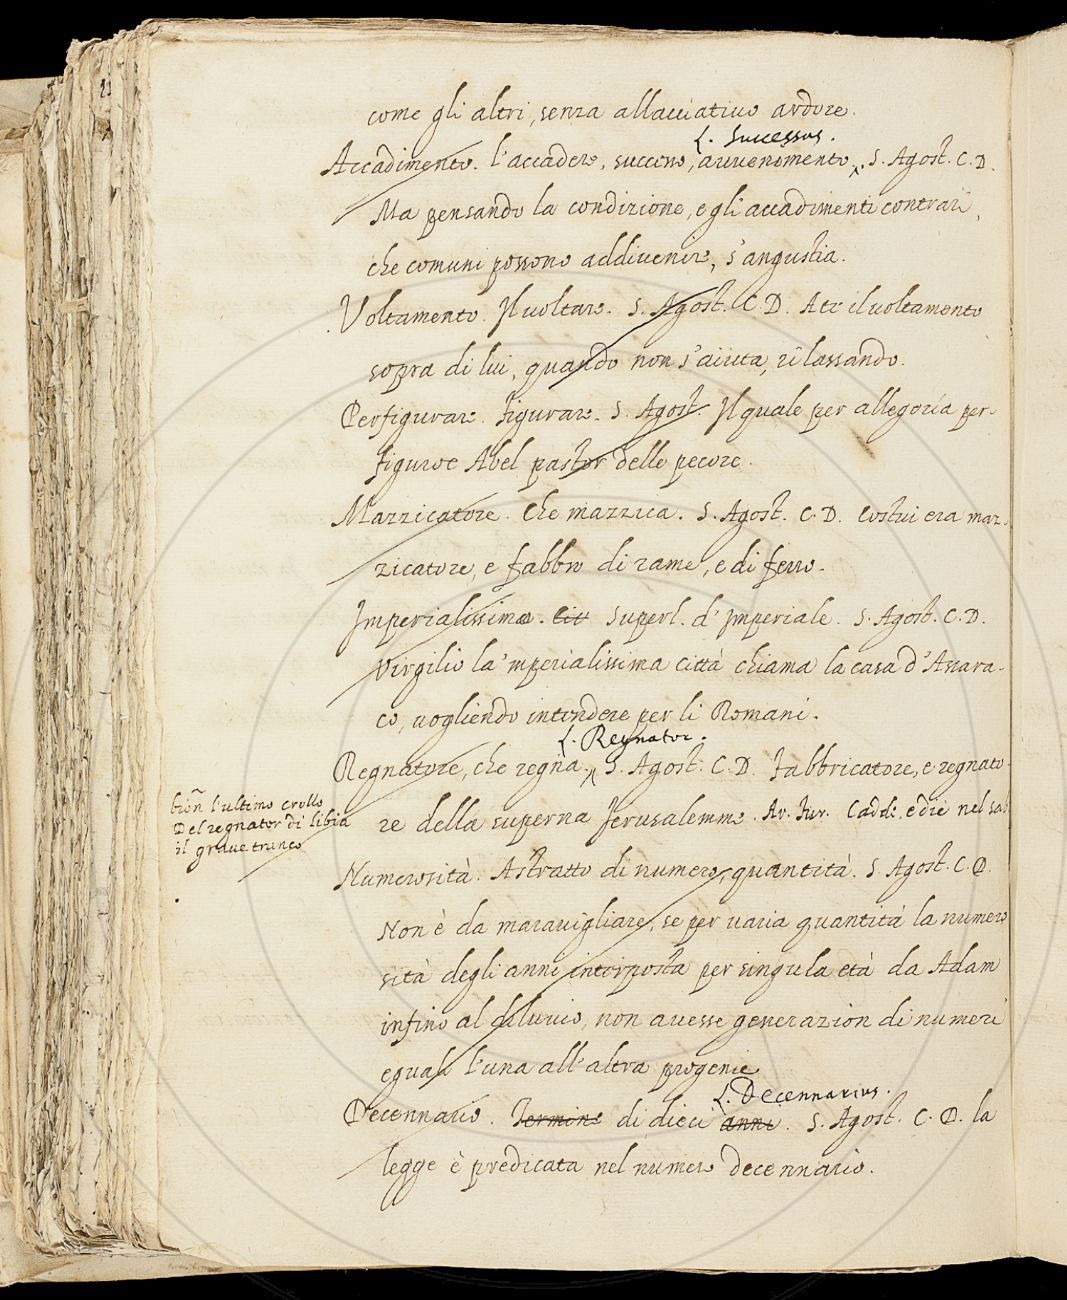 come gli altri, senza allacciativo ardore.
L. Successus.
Accadimento. l'accadere, successo, avvenemento, S. Agost. C. D.
Ma pensando la condizione, e gli accadimenti contrari,
che comuni possono addivenire, s'angustia.
Voltamento. Il voltare. S. Agost. C. D. il voltamento
sopra di lui, quando non s'aiuta, rilassando.
Perfigurare. figurare. S. Agost. Il quale per allegoria per-
figuroe Abel pastor delle pecore.
Mazzicatore. Che mazzica. S. Agost. C. D. Costui era maz-
zicatore, e fabbro di rame, e di ferro.
Imperialissima. Superl. d'Imperiale. S. Agost. C. D.
Virgilio la 'mperialissima città chiama la casa d'Assara-
co, vogliendo intendere per li Romani.
L. Regnator.
Regnatore, che regna. S. Agost. C. D. Fabbricatore, e regnato-
re della superna Jerusalemme. Ar. Fur. Cadde, e diè nel
l'ultimo crollo
Del regnator di Libia
il grave tronco
Numerosità. Astratto di numero, quantità. S. Agost. C. D.
Non è da maravigliare, se per varia quantità la numero
sità degli anni interposta per singula età da Adam
infino al diluvio, non avesse generazion di numeri
eguali l'una all'altra progenie
L. Decennarius.
Decennario. Termine di dieci anni. S. Agost. C. D. la
legge è predicata nel numero decennario.